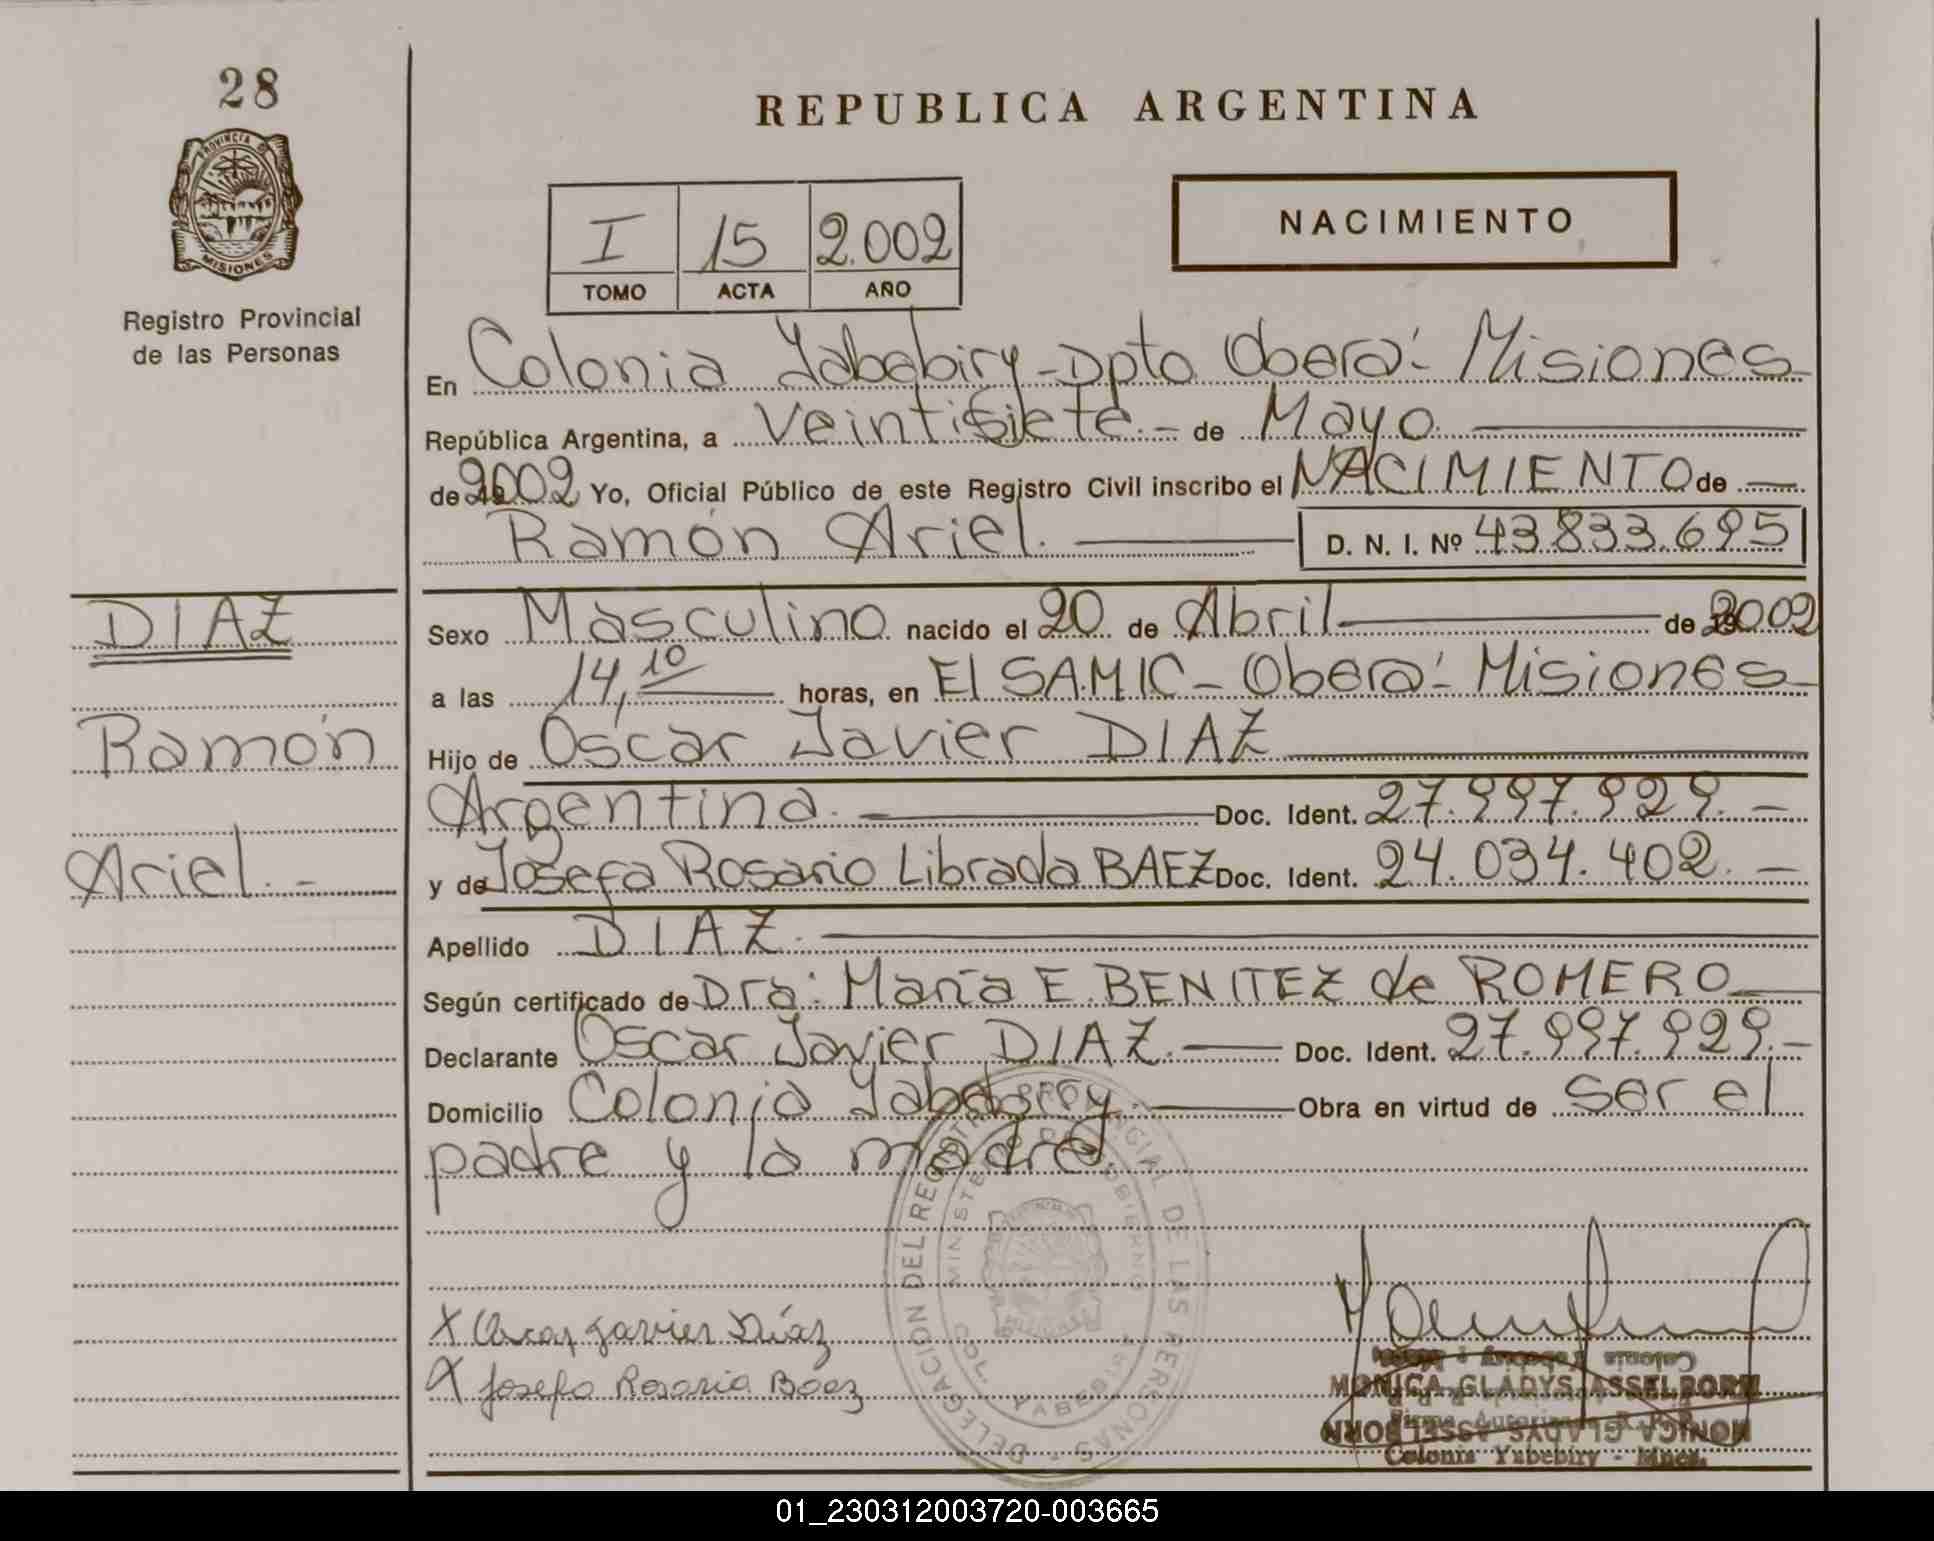 28
PROVINCIA DE
MISIONES
Registro Provincial
de las Personas
REPUBLICA ARGENTINA
I 15 2.002
TOMO ACTA AÑO
NACIMIENTO
En Colonia Yabebiry - Dpto Oberá - Misiones
República Argentina, a veintisiete.- de Mayo
de 2002 Yo, Oficial Público de este Registro Civil inscribo el NACIMIENTO de
Ramón Ariel. D. N. I. Nº 43.833.695
DIAZ
Ramón
Ariel.-
Sexo Masculino nacido el 20 de Abril de 2002
a las 14,10 horas, en El SAMIC - Oberá - Misiones
Hijo de Oscar Javier DIAZ
Argentina. Doc. Ident. 27.997.929.-
y de Josefa Rosario Librada BAEZ Doc. Ident. 24.034.402.-
Apellido DIAZ.
Según certificado de Dra: María E. BENITEZ de ROMERO
Declarante Oscar Javier DIAZ. Doc. Ident. 27.997.929.-
Domicilio Colonia Yabebiry. Obra en virtud de ser el
padre y la madre
DELEGACION DEL REGISTRO PROVINCIAL DE LAS PERSONAS
MINISTERIO DE GOBIERNO
COL. YABEBIRY
X Oscar Javier Díaz
X Josefa Rosario Baez
MONICA GLADYS ASSELBORN
Colonia Yabebiry - Mnes.
01_230312003720-003665